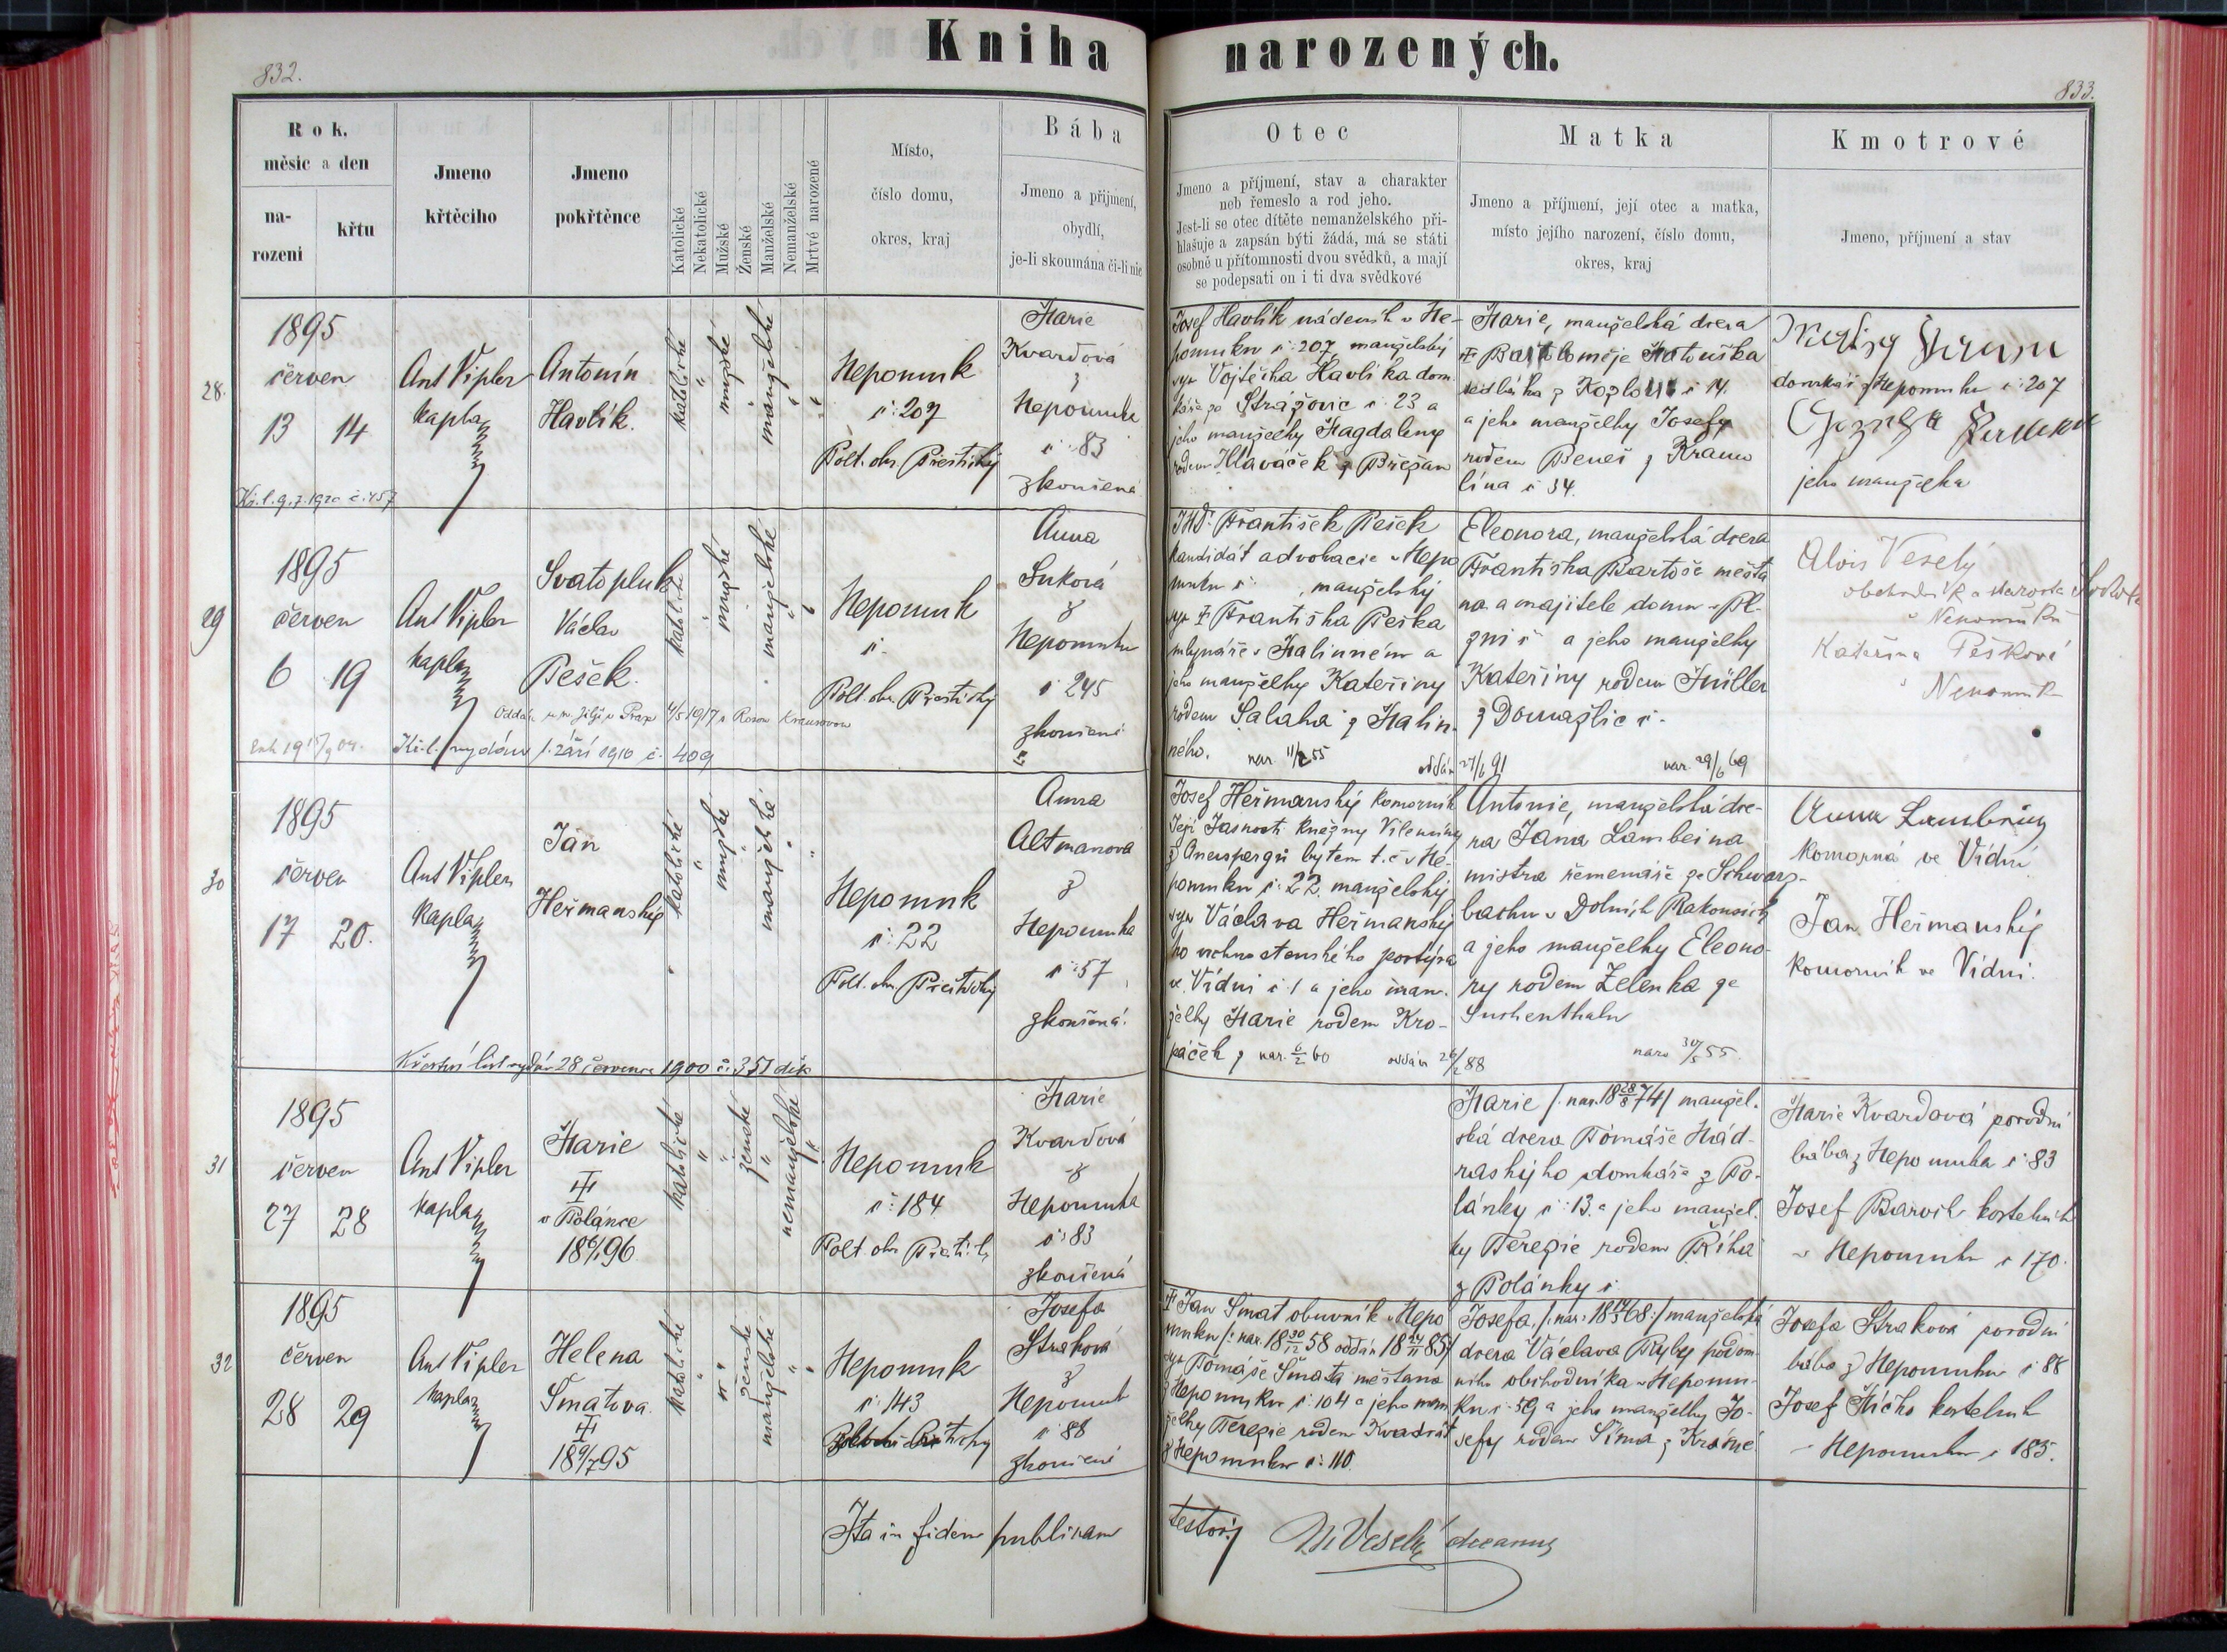 Kniha narozených.
832.
833.
Rok.
měsíc a den
na-
rozeni
křtu
Jmeno
křtěcího
Jmeno
pokřtěnce
Katolické
Nekatolické
Mužské
Ženské
Manželské
Nemanželské
Mrtvé narozené
Místo,
číslo domu,
okres, kraj
Bába
Jmeno a příjmení,
obydlí,
je-li skoumána či-li nic
Otec
Jmeno a příjmení, stav a charakter
neb řemeslo a rod jeho.
Jest-li se otec dítěte nemanželského při-
hlašuje a zapsán býti žádá, má se státi
osobně u přítomnosti dvou svědků, a mají
se podepsati on i ti dva svědkové
Matka
Jmeno a příjmení, její otec a matka,
místo jejího narození, číslo domu,
okres, kraj
Kmotrové
Jmeno, příjmení a stav
28.
1895
červen
13 14
Ant Vipler
kaplan
Antonín
Havlík.
katolické
mužské
manželské
Nepomuk
č: 207
Polt. okr. Přestický
Marie
Kvardová
z
Nepomuku
č: 83
zkoušená
Josef Havlík nádeník v Ne-
pomuku č: 207 manželský
syn Vojtěcha Havlíka dom-
káře ze Strážovic č: 23 a
jeho manželky Magdaleny
rodem Hlaváček z Břežan
Marie, manželská dcera
† Bartoloměje Matouška
sedláka z Kozlovic č 14.
a jeho manželky Josefy
rodem Beneš z Kramo
lína č 34.
domkář z Nepomuku č: 207
jeho manželka
Kř. l. 9.7.1920 č. 457
29
1895
červen
6 19
Ant Vipler
kaplan
Svatopluk
Václav
Pešek.
katolické
mužské
manželské
Nepomuk
č.
Polt. okr. Přestický
Anna
Suková
z
Nepomuku
č 245
zkoušená
JUDr. František Pešek
kandidát advokacie v Nepo
muku č: , manželský
syn † Františka Peška
mlynáře v Malinném a
jeho manželky Kateřiny
rodem Salaha z Malin-
ného. nar. 11/2 55 oddán 27/6 91
Eleonora, manželská dcera
Františka Bartoše měšťa
na a majitele domu v Pl-
zni č a jeho manželky
Kateřiny rodem Müller
z Domažlic č-
nar. 29/6 69
Alois Veselý
obchodník a starosta Sokola
v Nepomuku
Kateřina Pešková
v Nepomuku
Oddán u sv. Jiljí v Praze 4/5 1917 s Kraus­ovou
Kř. l. vydán 1. září 1910 č. 409
30
1895
červen
17 20.
Ant Vipler
kaplan
Jan
Heřmanský
katolické
mužské
manželské
Nepomuk
č: 22
Polt. okr. Přestický
Anna
Altmanová
z
Nepomuka
č: 57
zkoušená.
Josef Heřmanský komorník
Její Jasnosti kněžny Vilemíny
z Auerspergů bytem t. č. v Ne-
pomuku č: 22. manželský
syn Václava Heřmanský
ho vrchnostenského portýra
ve Vídni č 1 a jeho man-
želky Marie rodem Kro-
páček z nar. 6/2 60 oddán 26/2 88
Antonie, manželská dce-
ra Jana Lambeina
mistra řemenáře ze Schwarz-
bachu v Dolních Rakousích
a jeho manželky Eleono-
ry rodem Zelenka ze
Suchenthalu
naro 30/5 55.
Anna Lambein
komorná ve Vídni
Jan Heřmanský
komorník ve Vídni.
Křestní list vydán 28 července 1900 č: 351 děk
31
1895
červen
27 28
Ant Vipler
kaplan
Marie
†
v Polánce
18 6/1 96
katolické
ženské
nemanželské
Nepomuk
č: 184
Polt. okr. Přestick
Marie
Kvardová
z
Nepomuka
č: 83
zkoušená
Marie /: nar. 18 28/8 74/ manžel.
ská dcera Tomáše Hád-
raského domkáře z Po-
lánky č: 13. a jeho manžel.
ky Terezie rodem Říha
z Polánky č
Marie Kvardová porodní
bába z Nepomuka č: 83
Josef Barvík kostelník
v Nepomuku č 170.
32
1895
červen
28 29
Ant Vipler
kaplan
Helena
Šmatova.
†
18 9/7 95
katolické
ženské
manželské
Nepomuk
č: 143
Josefa
Straková
z
Nepomuk
č: 88
zkoušená
† Jan Šmat obuvník v Nepo
muku /: nar. 18 30/12 58 oddán 18 14/11 85/
syn Tomáše Šmata měšťana
z Nepomuku č: 104 a jeho man
želky Terezie rodem Kvadrát
z Nepomuku č: 110.
Josefa, /: nar: 18 14/3 68:/ manželská
dcera Václava Ryby podom
ního obchodníka v Nepomu-
ku č: 59 a jeho manželky Jo-
sefy rodem Šíma z Krásné
Josefa Straková porodní
bába z Nepomuku č 88
Josef Mícho kostelník
v Nepomuku č 185.
Ita in fidem publicam
testor
Veselý decanus